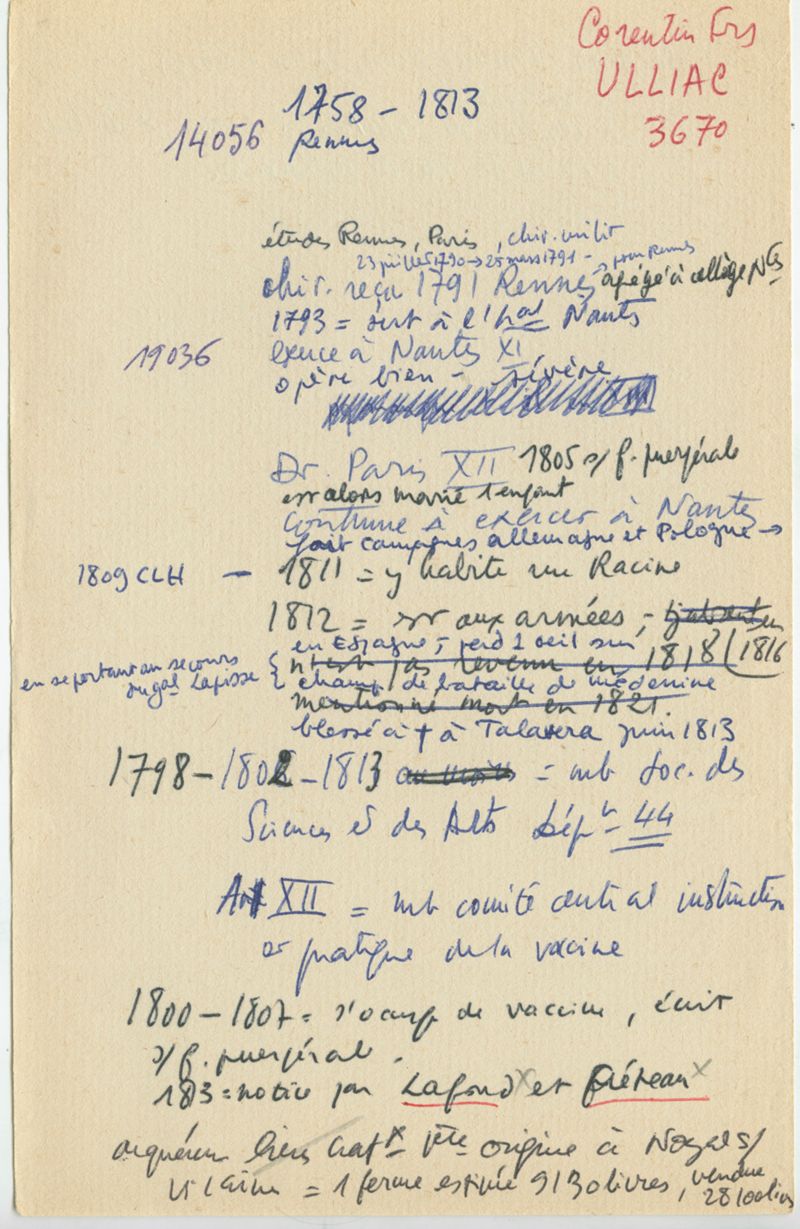 Corentin Frs
ULLIAC
3670
1758 - 1813
14056 Rennes
études Rennes, Paris, chir. milit
23 juillet 1790 → 25 mars 1791 - pour Rennes
chir. reçu 1791 Rennes agrégé à collège Ntes
1793 = sert à l'hal Nantes
19036 exerce à Nantes XI
opère bien - sévère
Dr. Paris XII 1805 s/ f. puerpérale
est alors marié 1 enfant
Continue à exercer à Nantes
fait campagnes allemagne et Pologne →
1809 CLH - 1811 = y habite rue Racine
1812 = est aux armées, -
en Espagne, - perd 1 oeil sur
n'est pas revenu en 1818 (1816
en se portant au secours
du gal Lapisse
champ de bataille de médenine
mentionné mort en 1821.
blessé à † à Talavera juin 1813
1798 - 1802 - 1813 = mb Soc. des
Sciences et des Arts Dépt 44
An XII = mb comité central instruction
et pratique de la vaccine
1800 - 1807 = s'occupe de vaccine, écrit
s/ f. puerpérale.
1813 = notice par Lafond x et Fréteau x
acquéreur biens natx 1ère origine à Noyal s/
Vilaine = 1 ferme estimée 9130 livres, vendue
28100 livres